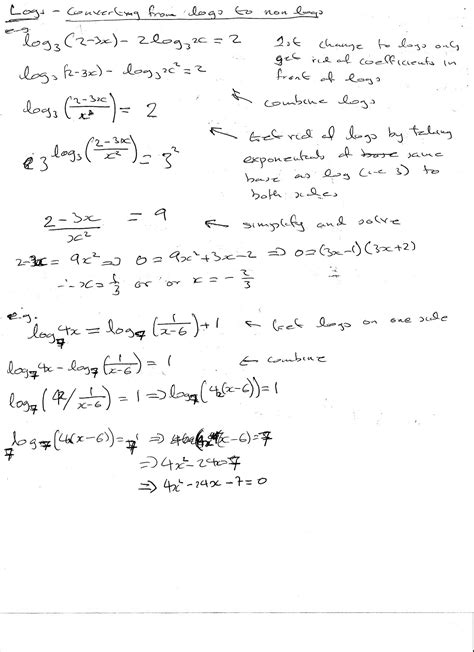 Logs - Converting from logs to non logs
e.g
log₃(2-3x) - 2log₃x = 2   1st change to logs only
get rid of coefficients in
front of logs
log₃(2-3x) - log₃x² = 2
log₃((2-3x)/x²) = 2   ← combine logs
← Get rid of logs by taking
exponentials of base same
base as log (i.e 3) to
both sides
3^log₃((2-3x)/x²) = 3²
(2-3x)/x² = 9   ← simplify and solve
2-3x = 9x² ⇒ 0 = 9x²+3x-2 ⇒ 0=(3x-1)(3x+2)
∴ x = 1/3 or or x = -2/3
e.g.
log₇4x = log₇(1/(x-6)) + 1   ← Get logs on one side
log₇4x - log₇(1/(x-6)) = 1   ← combine
log₇(4x/1/(x-6)) = 1 ⇒ log₇(4x(x-6)) = 1
7^log₇(4x(x-6)) = 7¹ ⇒ 4x(x-6) = 7
⇒ 4x²-24x=7
⇒ 4x²-24x-7=0